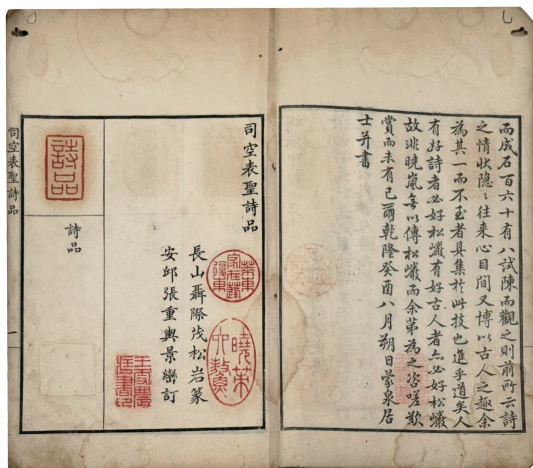 而成石百六十有八試陳而觀之則前所云詩
之情狀隱〻往来心目間又博以古人之趣余
為其一而不至者具集於此技也進乎道矣人
有好詩者必好松巖有好古人者亦必好松巖
故非曉嵐無以傳松巖而余第為之咨嗟歎
賞而未有已爾乾隆癸酉八月朔日蒙泉居
士并書
司空表聖詩品
長山聶際茂松岩篆
安邱張重輿景巒訂
詩品
詩品
司空表聖詩品
一